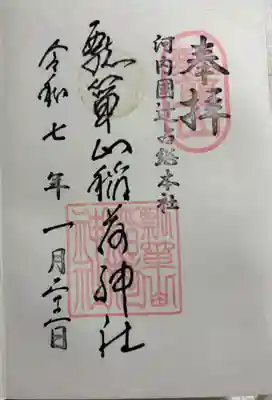 奉拝
河内国辻占総本社
瓢箪山稲荷神社
令和七年一月二十二日